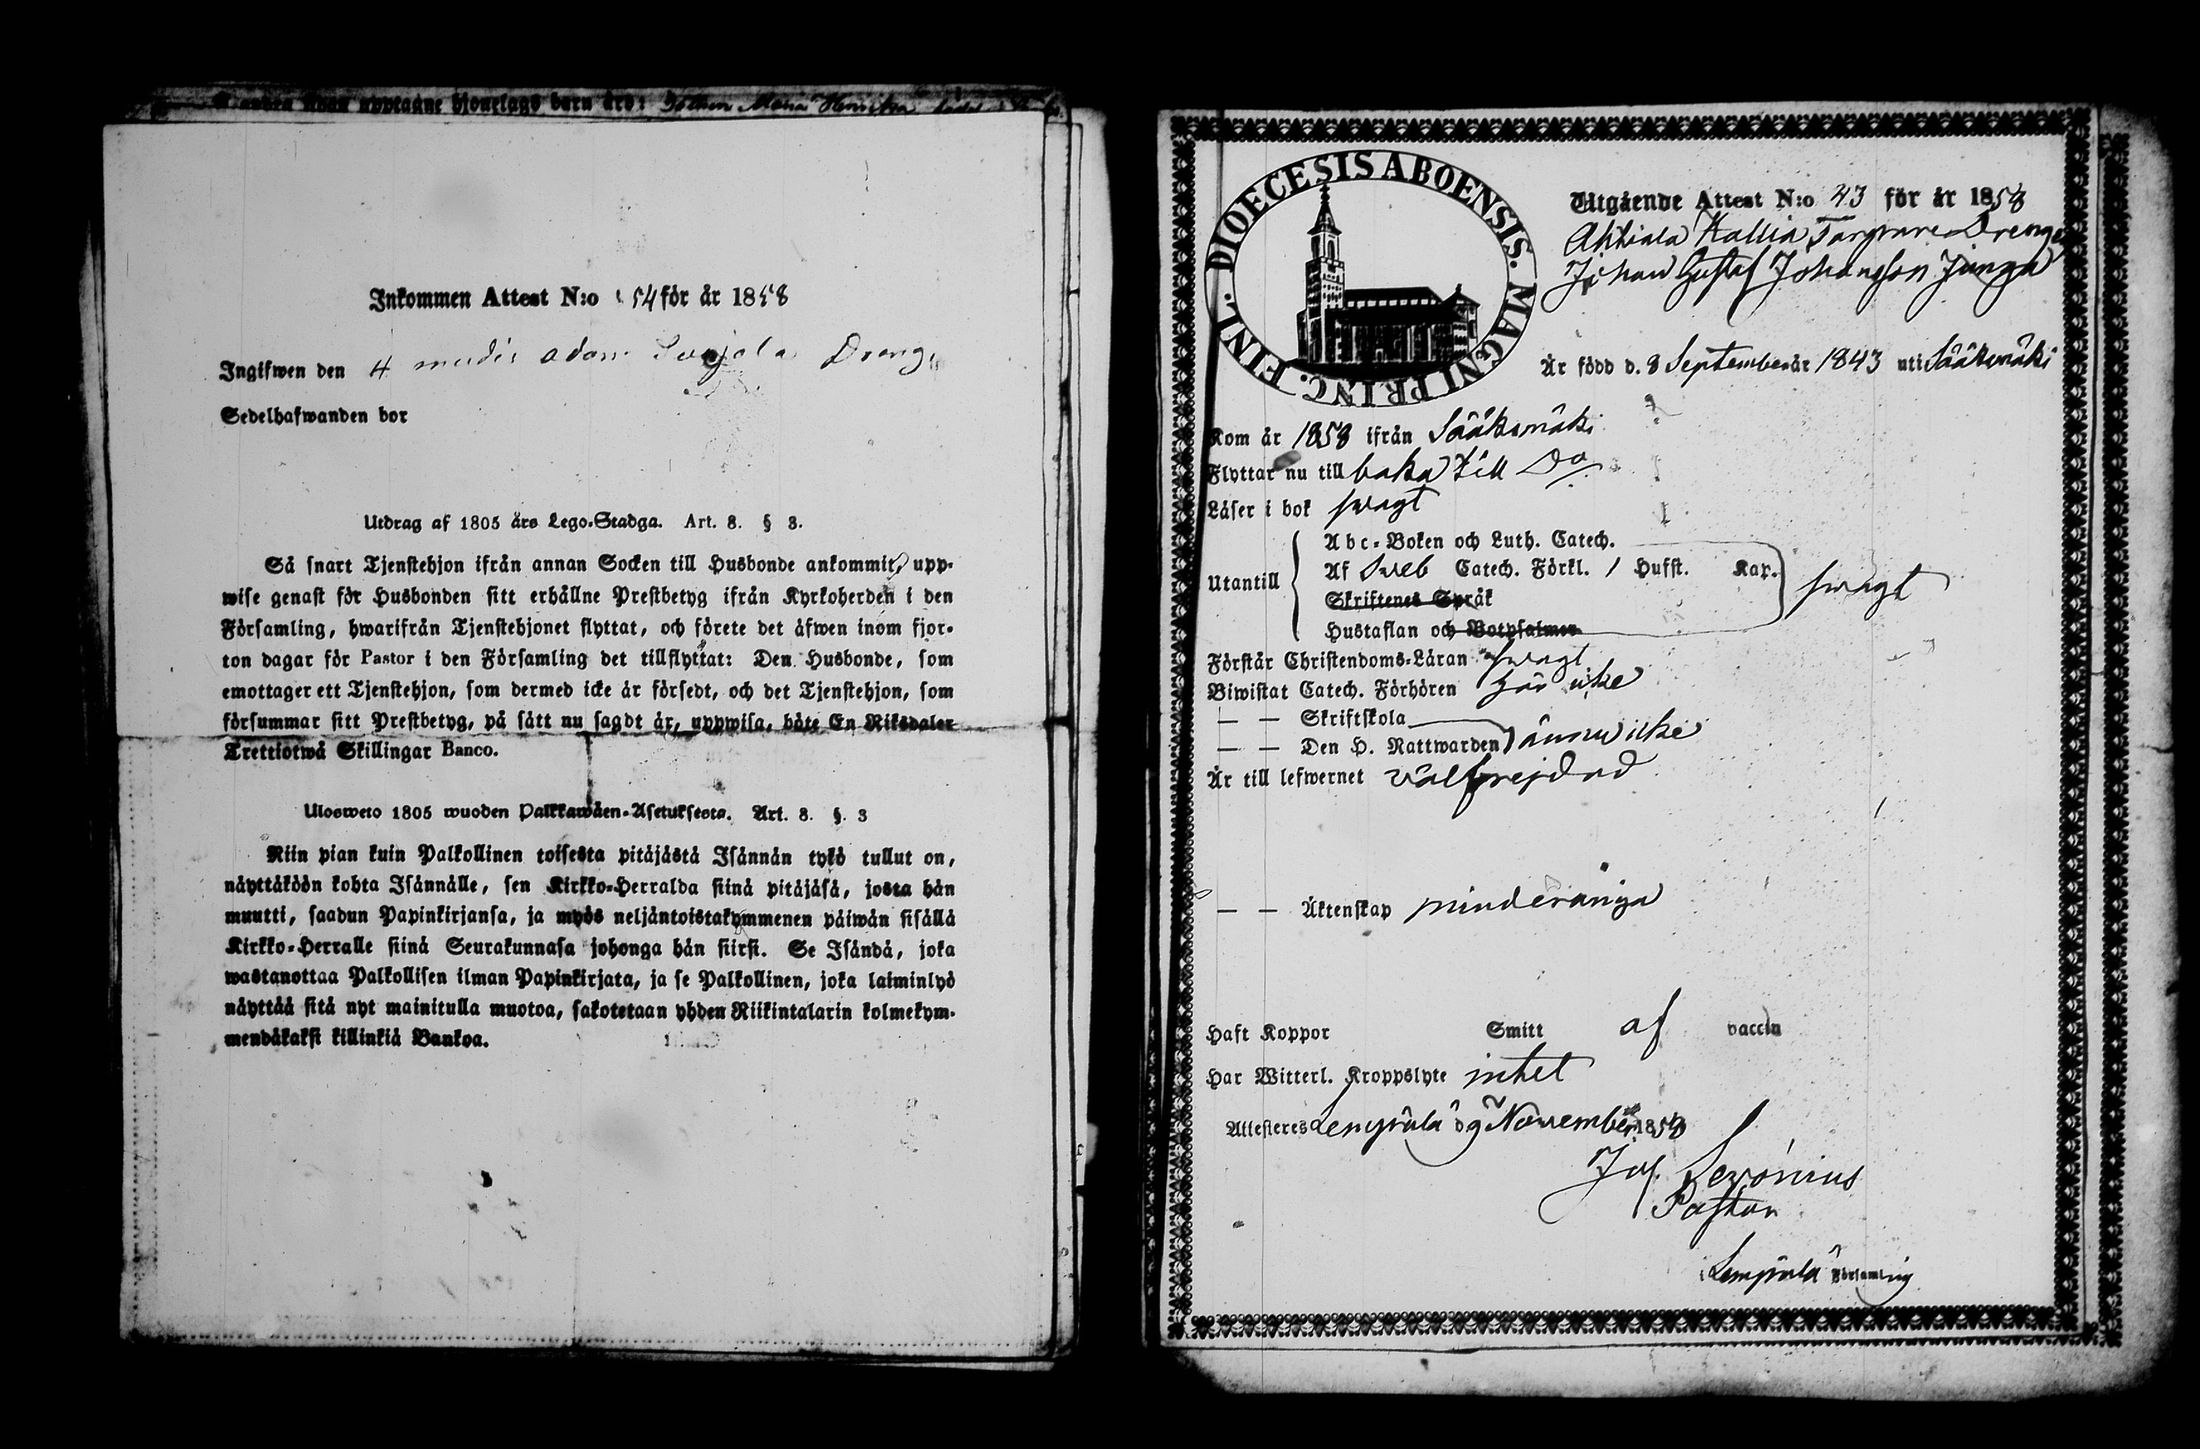 å andra sidan upptagne hjonelags barn äro: Dottren Maria Henrika
Inkommen Attest N:o 154 för år 1858
Ingifwen den 4 Adam Dreng
Sedelhafwanden bor
Utdrag af 1805 års Lego-Stadga. Art. 8. § 3.
Så snart Tjenstehjon ifrån annan Socken till Husbonde ankommit, upp-
wise genast för Husbonden sitt erhållne Prestbetyg ifrån Kyrkoherden i den
Församling, hwarifrån Tjenstehjonet flyttat, och förete det äfwen inom fjor-
ton dagar för Pastor i den Församling det tillflyttat: Den Husbonde, som
emottager ett Tjenstehjon, som dermed icke är försedt, och det Tjenstehjon, som
försummar sitt Prestbetyg, på sätt nu sagdt är, uppwisa, böte En Riksdaler
Trettiotwå Skillingar Banco.
Ulosweto 1805 wuoden Palkkawäen-Asetuksesta. Art. 8. §. 3
Niin pian kuin Palkollinen toisesta pitäjästä Isännän tykö tullut on,
näyttäköön kohta Isännälle, sen Kirkko-Herralda siinä pitäjäsä, josta hän
muutti, saadun Papinkirjansa, ja myös neljäntoistakymmenen päiwän sisällä
Kirkko-Herralle siinä Seurakunnasa johonga hän siirsi. Se Isändä, joka
wastanottaa Palkollisen ilman Papinkirjata, ja se Palkollinen, joka laiminlyö
näyttää sitä nyt mainitulla muotoa, sakotetaan yhden Riikintalarin kolmekym-
mendäkaksi killinkiä Bankoa.
DIOECESIS ABOENSIS. MAGNI PRINC. FINL.
Utgående Attest N:o 43 för år 1858
Ahtiala Kallia Torpare Dreng
Johan Gustaf Johansson Junga
Är född d. 8 September år 1843 uti Sääksmäki
Kom år 1858 ifrån Sääksmäki
Flyttar nu till baka till Do
Läser i bok swagt
Abc-Boken och Luth. Catech.
Utantill Af Sveb Catech. Förkl. 1 Hufst. Kap. swagt
Skriftenes Språk
Hustaflan och Botpsalmer
Förstår Christendoms-Läran swagt
Biwistat Catech. Förhören här icke
— — Skriftskola
— — Den H. Nattwarden ännu icke
Är till lefwernet välfrejdad
— — Äktenskap minderåriga
Haft Koppor Smitt af vaccin
Har Witterl. Kroppslyte intet
Attesteres Lempälä d 9 November 1858
Jos. Serónius
Pastor
i Lempälä Församling